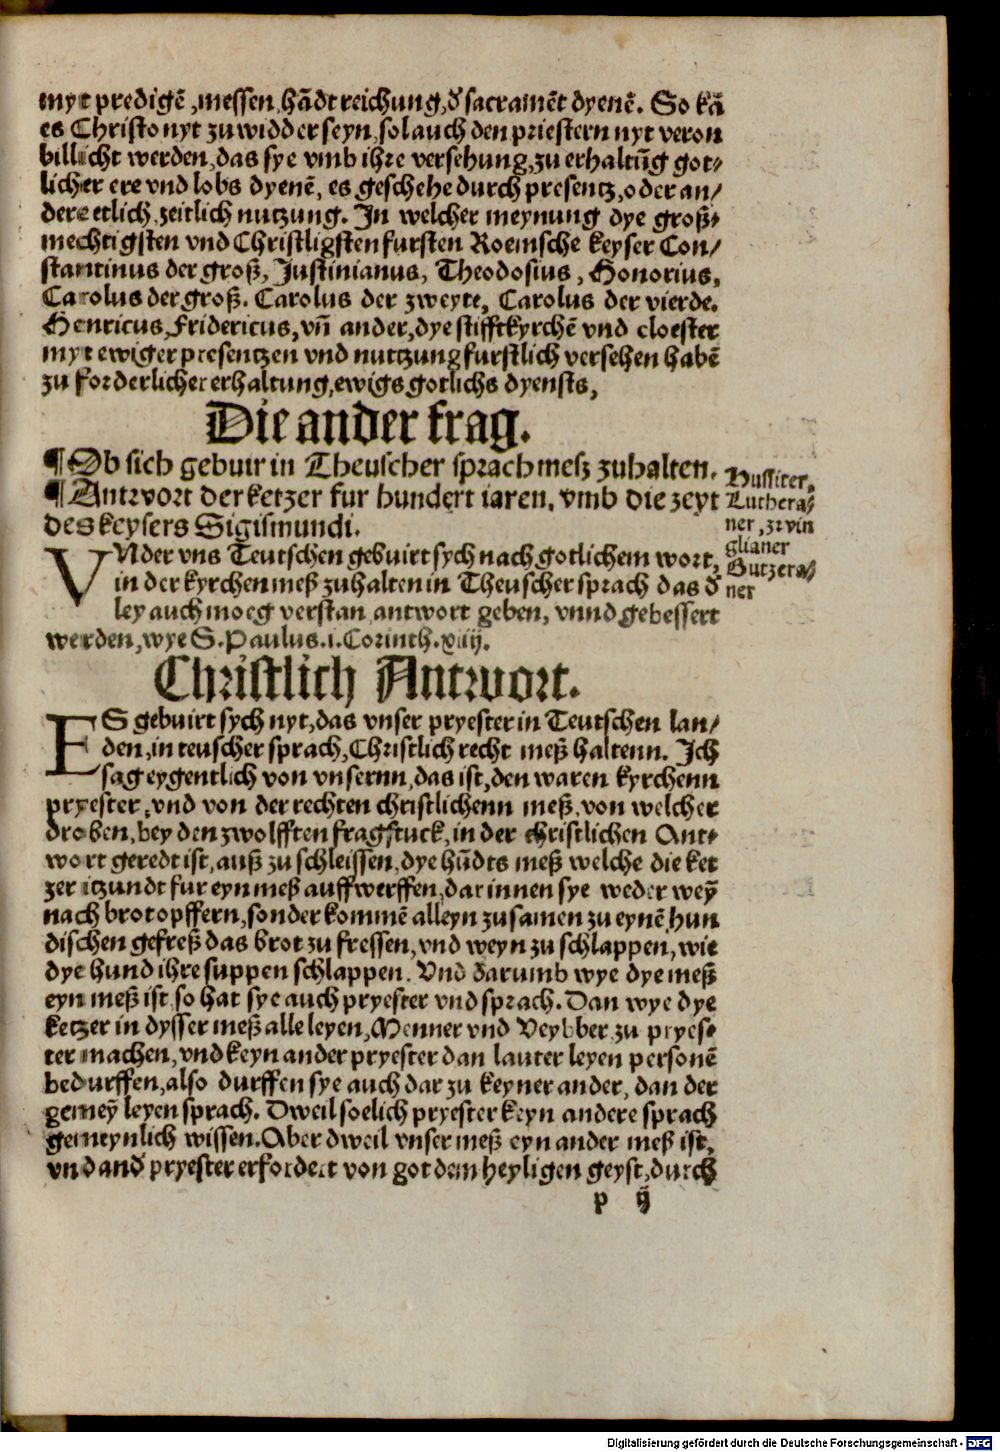 myt predigē, messen, hādtreichung, d̕ sacramēt dyenē. So kā
es Christo nyt zuwidder seyn, sol auch den priestern nyt veron
billicht werden, das sye vmb ihre versehung, zu erhaltūg got⸗
licher ere vnd lobs dyenē, es geschehe durch presentz, oder an/
dere etlich zeitlich nutzung. In welcher meynung dye groß⸗
mechtigsten vnd Christligsten fursten Roemsche keyser Con/
stantinus der groß, Justinianus, Theodosius, Honorius,
Carolus der groß. Carolus der zweyte, Carolus der vierde.
Henricus, Fridericus, vn̄ ander, dye stifftkyrchē vnd cloester
myt ewiger presentzen vnd nutzung furstlich versehen habē
zu forderlicher erhaltung, ewigs gotlichs dyensts,
Die ander frag.
¶ Ob sich gebuir in Theuscher sprach mesz zuhalten.
¶ Antwort der ketzer fur hundert iaren, vmb die zeyt
des keysers Sigismundi.
Hussiter,
Luthera⸗/
ner, zwin
glianer
Butzera⸗/
ner
VNder vns Teutschen gebuirt sych nach gotlichem wort,
in der kyrchen meß zuhalten in Theuscher sprach das d̕
ley auch moeg verstan antwort geben, vnnd gebessert
werden, wye S. Paulus .i. Corinth. xiiij.
Christlich Antwort.
ES gebuirt sych nyt, das vnser pryester in Teutschen lan/
den, in teuscher sprach, Christlich recht meß haltenn. Ich
sag eygentlich von vnsernn, das ist, den waren kyrchenn
pryester, vnd von der rechten christlichenn meß, von welcher
droben, bey den zwolfften fragstuck, in der christlichen Ant⸗
wort geredt ist, auß zu schleissen, dye hūdts meß welche die ket
zer itzundt fur eyn meß auffwerffen, dar innen sye weder weȳ
nach brot opffern, sonder kommē alleyn zusamen zu eynē hun
dischen gefreß das brot zu fressen, vnd weyn zu schlappen, wie
dye hund ihre suppen schlappen. Vnd darumb wye dye meß
eyn meß ist, so hat sye auch pryester vnd sprach. Dan wye dye
ketzer in dysser meß alle leyen, Menner vnd Veybber zu pryes⸗
ter machen, vnd keyn ander pryester dan lauter leyen personē
bedurffen, also durffen sye auch dar zu keyner ander, dan der
gemeȳ leyen sprach. Dweil soelich pryester keyn andere sprach
gemeynlich wissen. Aber dweil vnser meß eyn ander meß ist,
vnd and̕ pryester erfordert von got dem heyligen geyst, durch
p ij
Digitalisierung gefördert durch die Deutsche Forschungsgemeinschaft - DFG